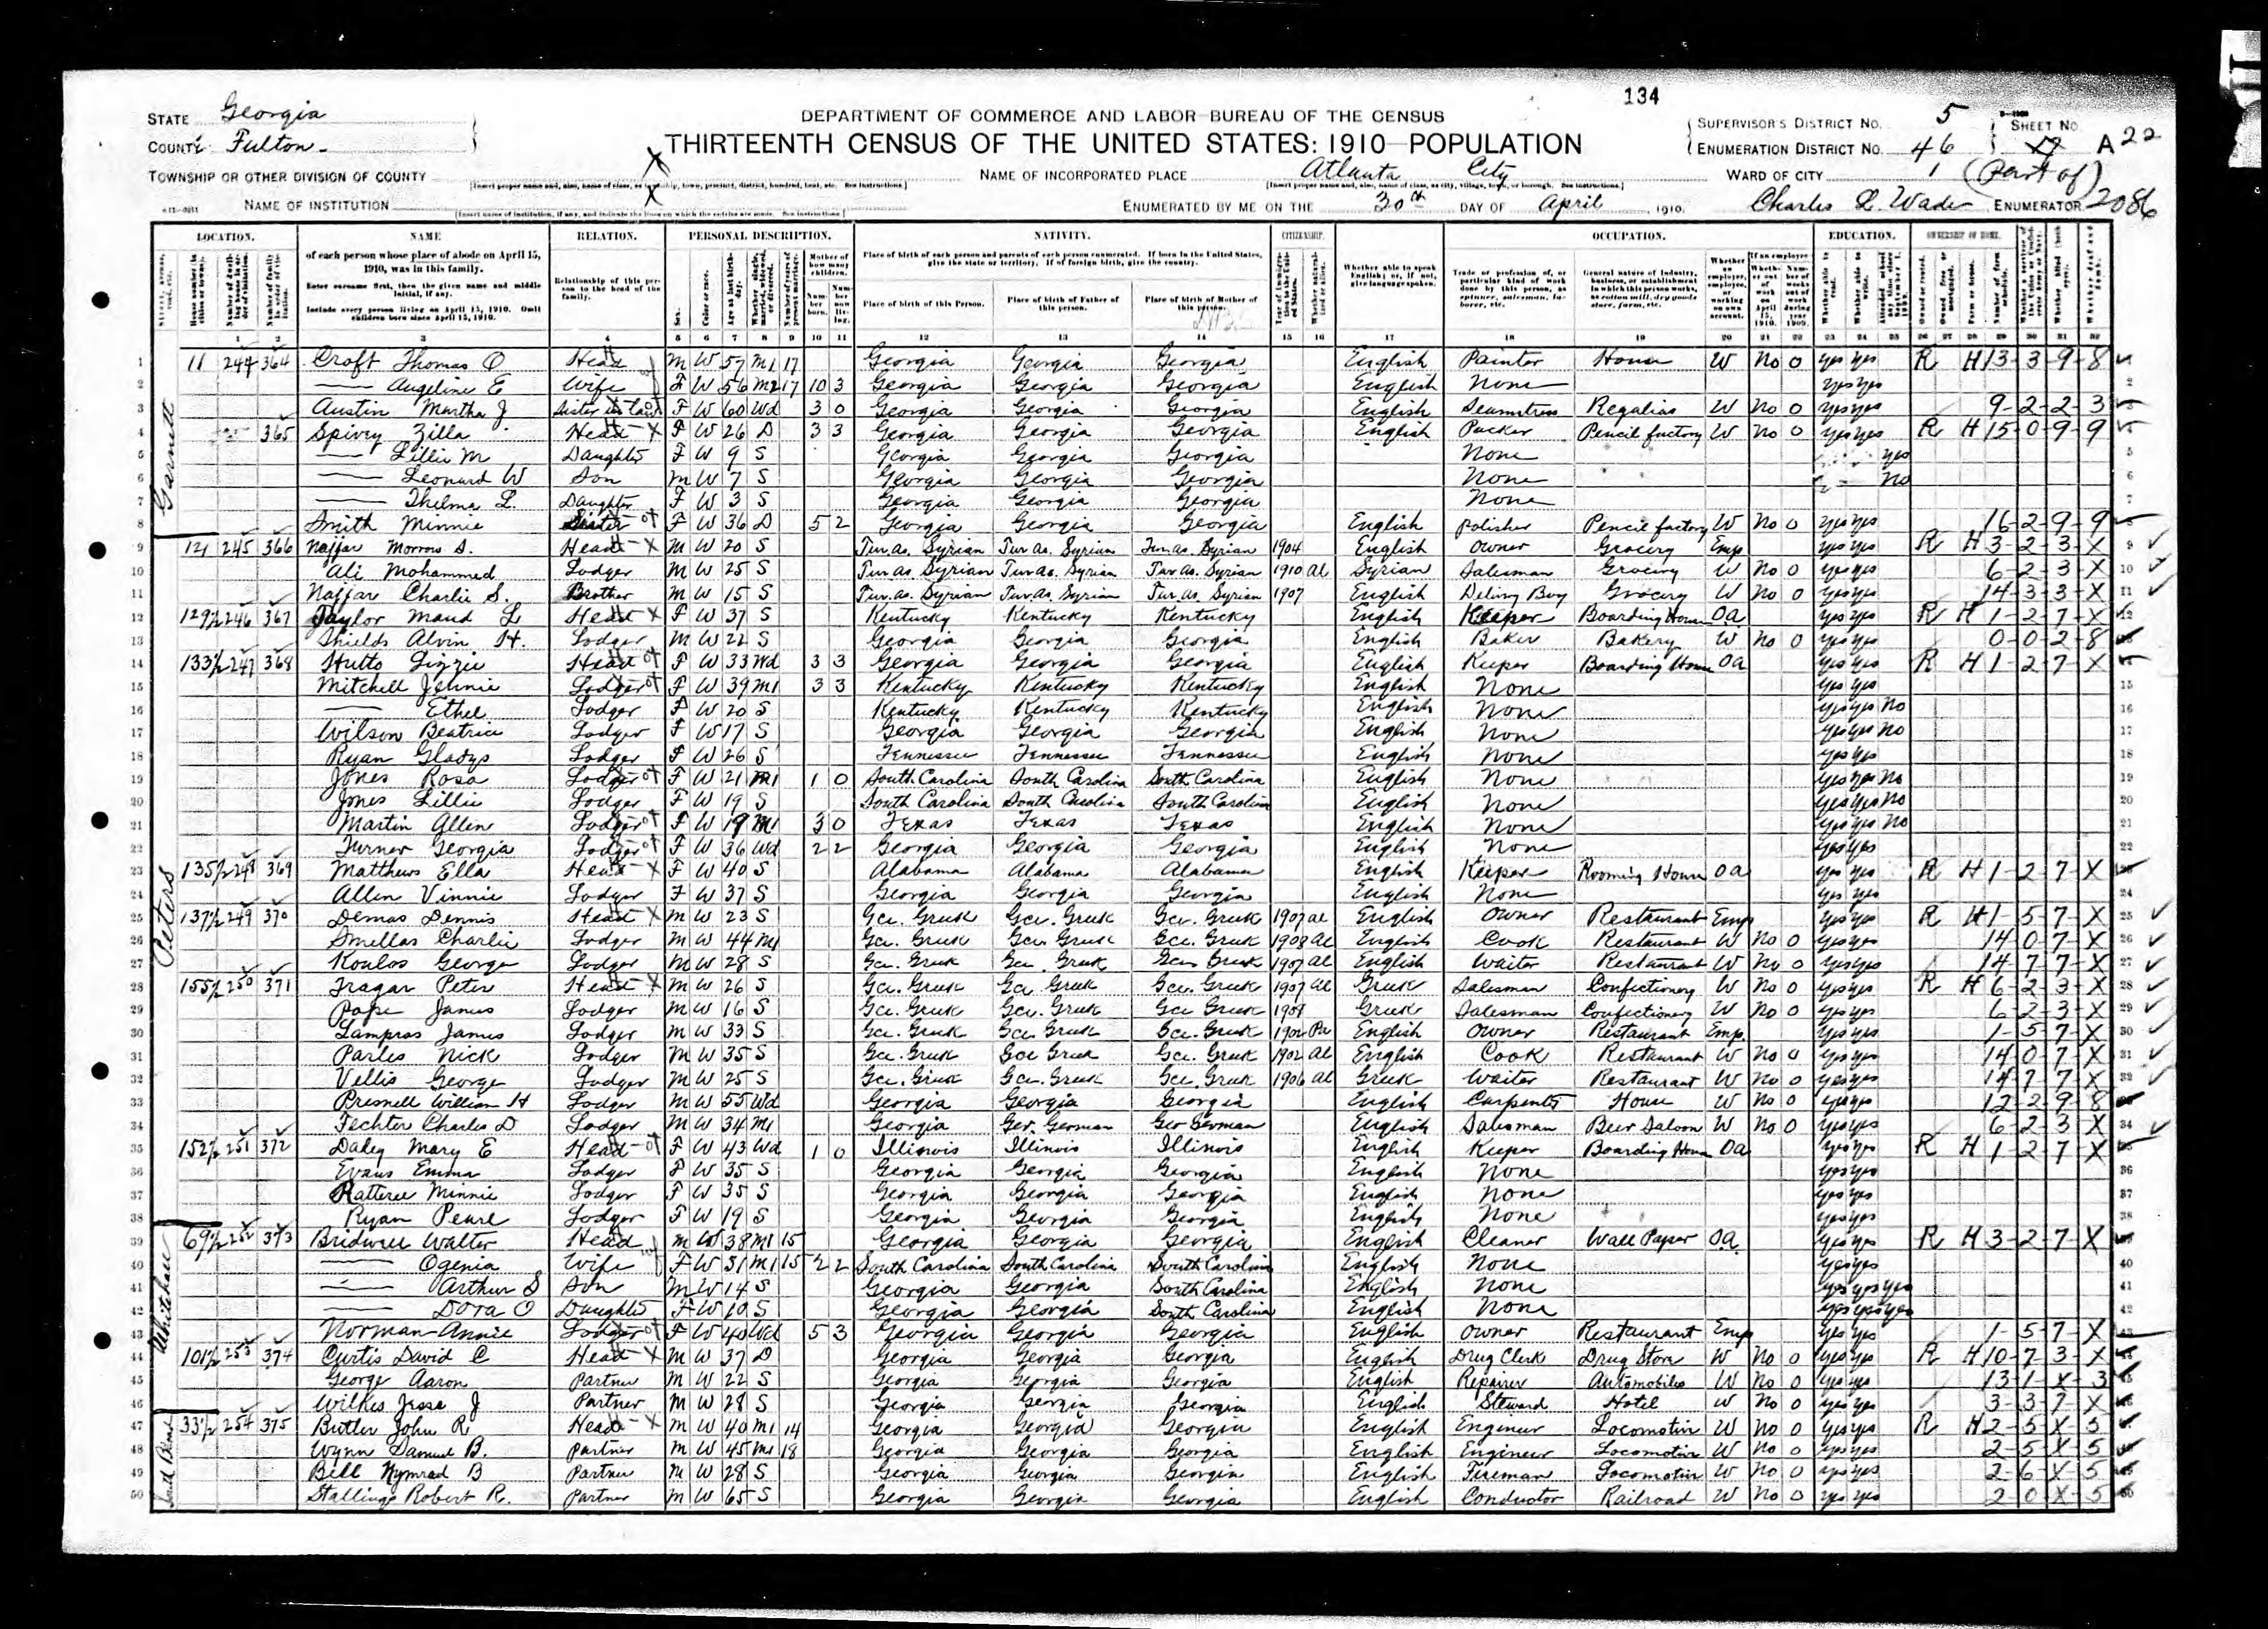 134
STATE Georgia
COUNTY Fulton
TOWNSHIP OR OTHER DIVISION OF COUNTY X
NAME OF INSTITUTION X
DEPARTMENT OF COMMERCE AND LABOR—BUREAU OF THE CENSUS
THIRTEENTH CENSUS OF THE UNITED STATES: 1910—POPULATION
NAME OF INCORPORATED PLACE Atlanta City
ENUMERATED BY ME ON THE 30th DAY OF April, 1910.
SUPERVISOR'S DISTRICT No. 5
ENUMERATION DISTRICT No. 46
SHEET No. A 22
WARD OF CITY 1 (Part of)
ENUMERATOR 2086
LOCATION. NAME RELATION. PERSONAL DESCRIPTION. NATIVITY. CITIZENSHIP. OCCUPATION. EDUCATION. OWNERSHIP OF HOME.
of each person whose place of abode on April 15, 1910, was in this family.
Enter surname first, then the given name and middle initial, if any.
Include every person living on April 15, 1910. Omit children born since April 15, 1910.
Relationship of this person to the head of the family.
Place of birth of each person and parents of each person enumerated. If born in the United States, give the state or territory. If of foreign birth, give the country.
Place of birth of this Person. Place of birth of Father of this person. Place of birth of Mother of this person.
Whether able to speak English; or, if not, give language spoken.
Garnett
1 11 244 364 Croft Thomas O Head M W 57 M1 17 Georgia Georgia Georgia English Painter House W No 0 yes yes R H 13-3-9-8
2 —— Angeline E Wife F W 56 M2 17 10 3 Georgia Georgia Georgia English None yes yes
3 Austin Martha J Sister in law F W 60 Wd 3 0 Georgia Georgia Georgia English Seamstress Regalias W No 0 yes yes 9-2-2-3
4 365 Spivey Zilla Head F W 26 D 3 3 Georgia Georgia Georgia English Packer Pencil factory W No 0 yes yes R H 15-0-9-9
5 —— Lillie M Daughter F W 9 S Georgia Georgia Georgia None yes
6 —— Leonard W Son M W 7 S Georgia Georgia Georgia None No
7 —— Thelma L. Daughter F W 3 S Georgia Georgia Georgia None
8 Smith Minnie Sister F W 36 D 5 2 Georgia Georgia Georgia English Polisher Pencil factory W No 0 yes yes 16-2-9-9
Peters
9 121 245 366 Naffar Morrow S. Head M W 20 S Tur. As. Syrian Tur As. Syrian Tur As. Syrian 1904 English Owner Grocery Emp yes yes R H 3-2-3-X
10 Ali Mohammed Lodger M W 25 S Tur As Syrian Tur As. Syrian Tur As. Syrian 1910 al Syrian Salesman Grocery W No 0 yes yes 6-2-3-X
11 Naffar Charlie S. Brother M W 15 S Tur. As. Syrian Tur As. Syrian Tur As. Syrian 1907 English Delivry Boy Grocery W No 0 yes yes 14-3-3-X
12 129½ 246 367 Taylor Maud L Head F W 37 S Kentucky Kentucky Kentucky English Keeper Boarding House Oa yes yes R H 1-2-7-X
13 Shields Alvin H. Lodger M W 22 S Georgia Georgia Georgia English Baker Bakery W No 0 yes yes 0-0-2-8
14 133½ 247 368 Hutto Lizzie Head F W 33 Wd 3 3 Georgia Georgia Georgia English Keeper Boarding House Oa yes yes R H 1-2-7-X
15 Mitchell Jennie Lodger F W 39 M1 3 3 Kentucky Kentucky Kentucky English None yes yes
16 —— Ethel Lodger F W 20 S Kentucky Kentucky Kentucky English None yes yes No
17 Wilson Beatrice Lodger F W 17 S Georgia Georgia Georgia English None yes yes No
18 Ryan Gladys Lodger F W 26 S Tennessee Tennessee Tennessee English None yes yes
19 Jones Rosa Lodger F W 21 M1 1 0 South Carolina South Carolina South Carolina English None yes yes No
20 Jones Lillie Lodger F W 19 S South Carolina South Carolina South Carolina English None yes yes No
21 Martin Allen Lodger F W 19 M1 3 0 Texas Texas Texas English None yes yes No
22 Turner Georgia Lodger F W 36 Wd 2 2 Georgia Georgia Georgia English None yes yes
23 135½ 248 369 Matthews Ella Head F W 40 S Alabama Alabama Alabama English Keeper Rooming House Oa yes yes R H 1-2-7-X
24 Allen Vinnie Lodger F W 37 S Georgia Georgia Georgia English None yes yes
25 137½ 249 370 Demas Dennis Head M W 23 S Gce. Greek Gce. Greek Gce. Greek 1907 al English Owner Restaurant Emp yes yes R H 1-5-7-X
26 Smellas Charlie Lodger M W 44 M1 Gce. Greek Gce. Greek Gce. Greek 1908 al English Cook Restaurant W No 0 yes yes 14-0-7-X
27 Koulos George Lodger M W 28 S Gce. Greek Gce. Greek Gce. Greek 1907 al English Waiter Restaurant W No 0 yes yes 14-7-7-X
28 155½ 250 371 Tragar Peter Head M W 26 S Gce. Greek Gce. Greek Gce. Greek 1907 al Greek Salesman Confectionery W No 0 yes yes R H 6-2-3-X
29 Pape James Lodger M W 16 S Gce. Greek Gce. Greek Gce Greek Greek Salesman Confectionery W No 0 yes yes 6-2-3-X
30 Lampras James Lodger M W 33 S Gce. Greek Gce. Greek Gce. Greek Pa English Owner Restaurant Emp. yes yes 1-5-7-X
31 Parles Nick Lodger M W 35 S Gce. Greek Gce Greek Gce. Greek 1902 al English Cook Restaurant W No 0 yes yes 14-0-7-X
32 Vellis George Lodger M W 25 S Gce. Greek Gce. Greek Gce Greek 1906 al Greek Waiter Restaurant W No 0 yes yes 14-7-7-X
33 Presnell William H Lodger M W 55 Wd Georgia Georgia Georgia English Carpenter House W No 0 yes yes 12-2-9-8
34 Fechter Charles D Lodger M W 34 M1 Georgia Ger. German Ger German English Salesman Beer Saloon W No 0 yes yes 6-2-3-X
35 152½ 251 372 Daley Mary E Head F W 43 Wd 1 0 Illinois Illinois Illinois English Keeper Boarding House Oa yes yes R H 1-2-7-X
36 Evans Emma Lodger F W 35 S Georgia Georgia Georgia English None yes yes
37 Ratteree Minnie Lodger F W 35 S Georgia Georgia Georgia English None yes yes
38 Ryan Pearl Lodger F W 19 S Georgia Georgia Georgia English None yes yes
Whitehall
39 69½ 252 373 Bridwell Walter Head M W 38 M1 15 Georgia Georgia Georgia English Cleaner Wall Paper Oa yes yes R H 3-2-7-X
40 —— Ogenia Wife F W 31 M1 15 2 2 South Carolina South Carolina South Carolina English None yes yes
41 —— Arthur S Son M W 14 S Georgia Georgia South Carolina English None yes yes yes
42 —— Dora O Daughter F W 10 S Georgia Georgia South Carolina English None yes yes yes
43 Norman Annie Lodger F W 40 Wd 5 3 Georgia Georgia Georgia English Owner Restaurant Emp yes yes 1-5-7-X
44 101½ 253 374 Curtis David C Head M W 37 D Georgia Georgia Georgia English Drug Clerk Drug Store W No 0 yes yes R H 10-7-3-X
45 George Aaron Partner M W 22 S Georgia Georgia Georgia English Repairer Automobiles W No 0 yes yes 13-1-X-3
46 Wilkes Jesse J Partner M W 28 S Georgia Georgia Georgia English Steward Hotel W No 0 yes yes 3-3-7-X
47 33½ 254 375 Butler John R Head M W 40 M1 14 Georgia Georgia Georgia English Engineer Locomotive W No 0 yes yes R H 2-5-X-5
48 Wynn Samuel B. Partner M W 45 M1 18 Georgia Georgia Georgia English Engineer Locomotive W No 0 yes yes 2-5-X-5
49 Bell Nymrad B Partner M W 28 S Georgia Georgia Georgia English Fireman Locomotive W No 0 yes yes 2-6-X-5
50 Stallings Robert R. Partner M W 65 S Georgia Georgia Georgia English Conductor Railroad W No 0 yes yes 2-0-X-5